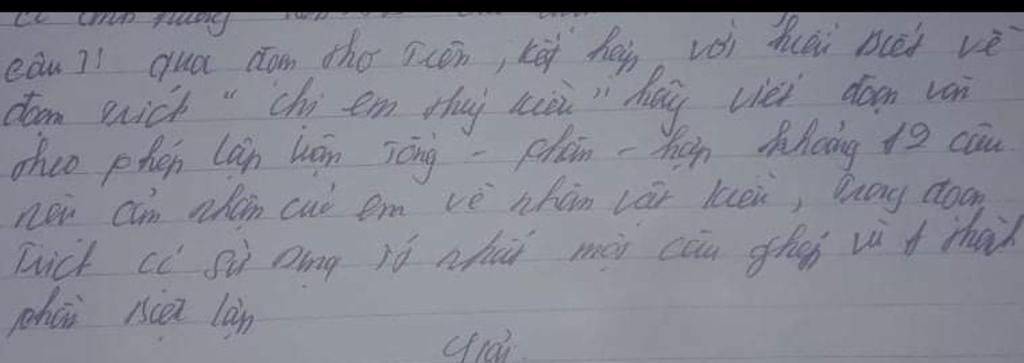 câu 7: qua đoạn thơ trên, kết hợp với hiểu biết về
đoạn trích "chị em thuý kiều" hãy viết đoạn văn
theo phép lập luận tổng - phân - hợp khoảng 12 câu
nêu cảm nhận của em về nhân vật kiều, trong đoạn
trích có sử dụng ít nhất một câu ghép và 1 thành
phần biệt lập
Giải